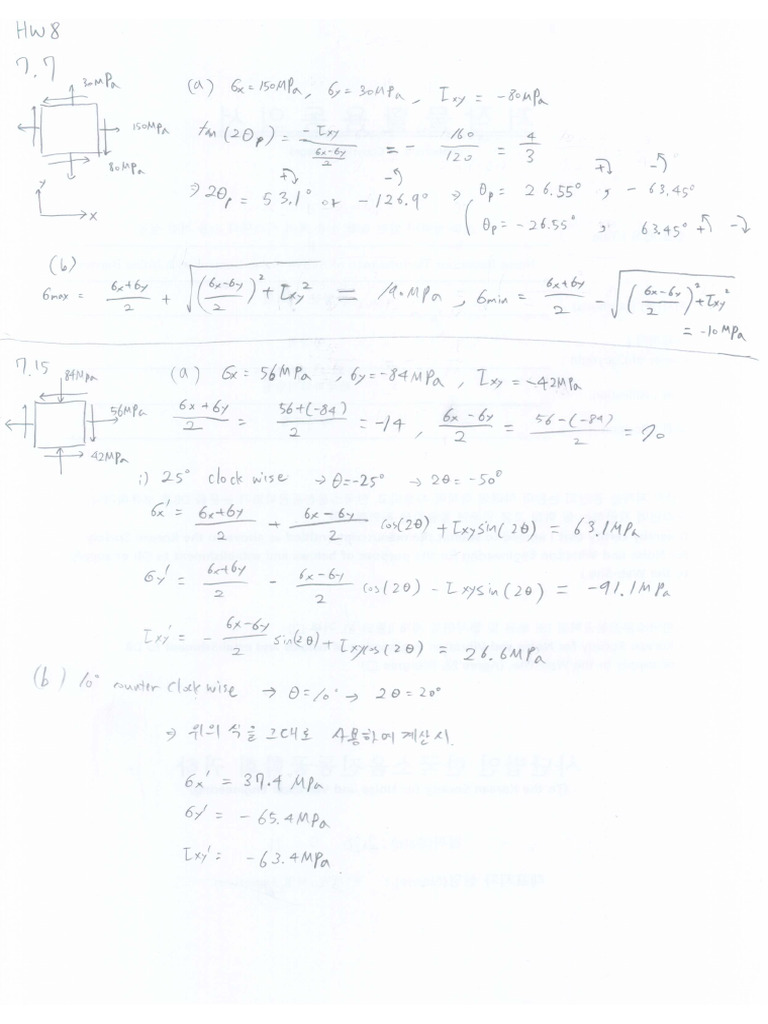 HW8
7.7
30MPa
150MPa
80MPa
y
x
(a) σx = 150MPa, σy = 30MPa, τxy = -80MPa
tan(2θp) = -τxy / ((σx-σy)/2) = - 160/120 = 4/3
⇒ 2θp = 53.1° or -126.9° ⇒ θp = 26.55°, -63.45°
θp = -26.55°, 63.45°
(b)
σmax = (σx+σy)/2 + √(((σx-σy)/2)² + τxy²) = 190MPa, σmin = (σx+σy)/2 - √(((σx-σy)/2)² + τxy²)
= -10MPa
7.15
84MPa
56MPa
42MPa
(a) σx = 56MPa, σy = -84MPa, τxy = -42MPa
(σx+σy)/2 = (56+(-84))/2 = -14, (σx-σy)/2 = (56-(-84))/2 = 70
i) 25° clock wise → θ=-25° → 2θ = -50°
σx' = (σx+σy)/2 + (σx-σy)/2 cos(2θ) + τxy sin(2θ) = 63.1MPa
σy' = (σx+σy)/2 - (σx-σy)/2 cos(2θ) - τxy sin(2θ) = -91.1MPa
τxy' = - (σx-σy)/2 sin(2θ) + τxy cos(2θ) = 26.6MPa
(b) 10° counter clock wise → θ=10° → 2θ=20°
⇒ 위의 식을 그대로 사용하여 계산시.
σx' = 37.4 MPa
σy' = -65.4MPa
τxy' = -63.4MPa